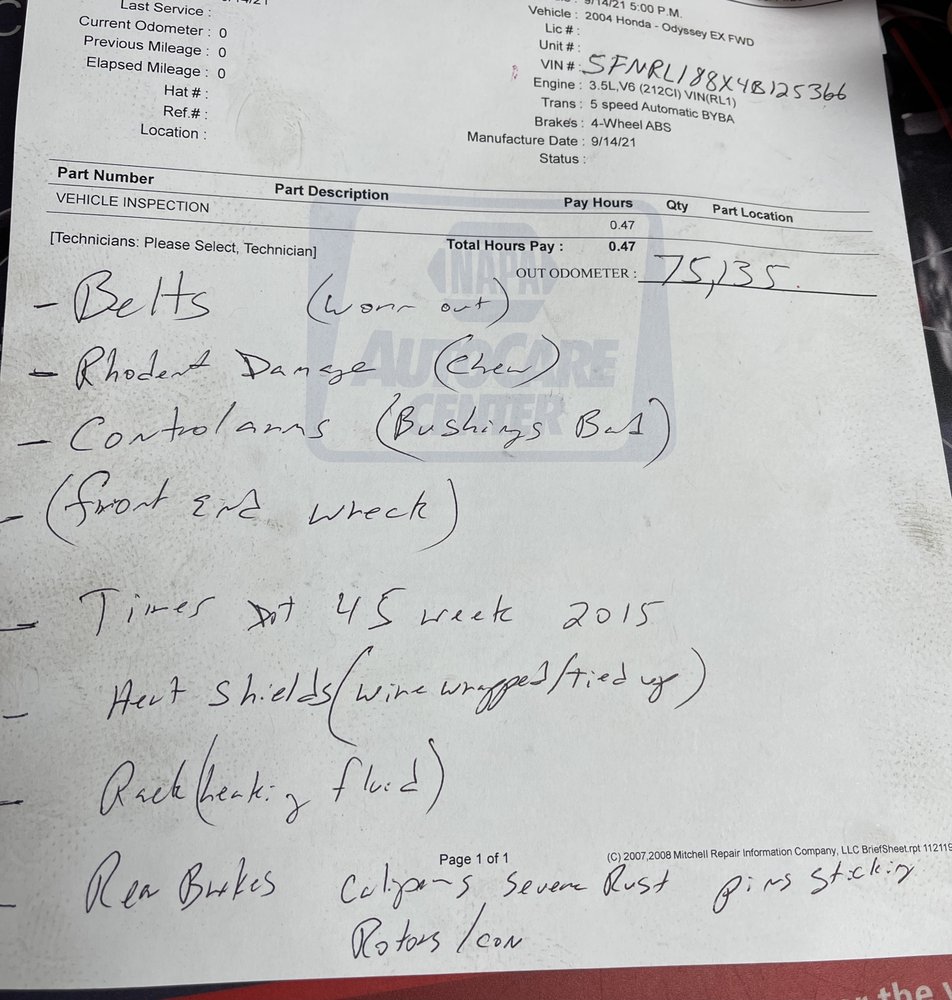 Last Service :
Current Odometer : 0
Previous Mileage : 0
Elapsed Mileage : 0
Hat # :
Ref.# :
Location :
9/14/21 5:00 P.M.
Vehicle : 2004 Honda - Odyssey EX FWD
Lic # :
Unit # :
VIN # : 5FNRL188X4B125366
Engine : 3.5L,V6 (212CI) VIN(RL1)
Trans : 5 speed Automatic BYBA
Brakes : 4-Wheel ABS
Manufacture Date : 9/14/21
Status :
Part Number Part Description Pay Hours Qty Part Location
VEHICLE INSPECTION 0.47
[Technicians: Please Select, Technician] Total Hours Pay : 0.47
OUT ODOMETER : 75,135.
NAPA
AUTOCARE
CENTER
- Belts (worn out)
- Rhodent Damage (Chew)
- Control arms (Bushings Bad)
- (front end wreck)
- Tires Dot 45 week 2015
- Heat Shields (wire wrapped/tied up)
- Rack (leaking fluid)
Page 1 of 1
(C) 2007,2008 Mitchell Repair Information Company, LLC BriefSheet.rpt 112119
- Rear Brakes Calipers severe Rust pins sticking
Rotors /con
the